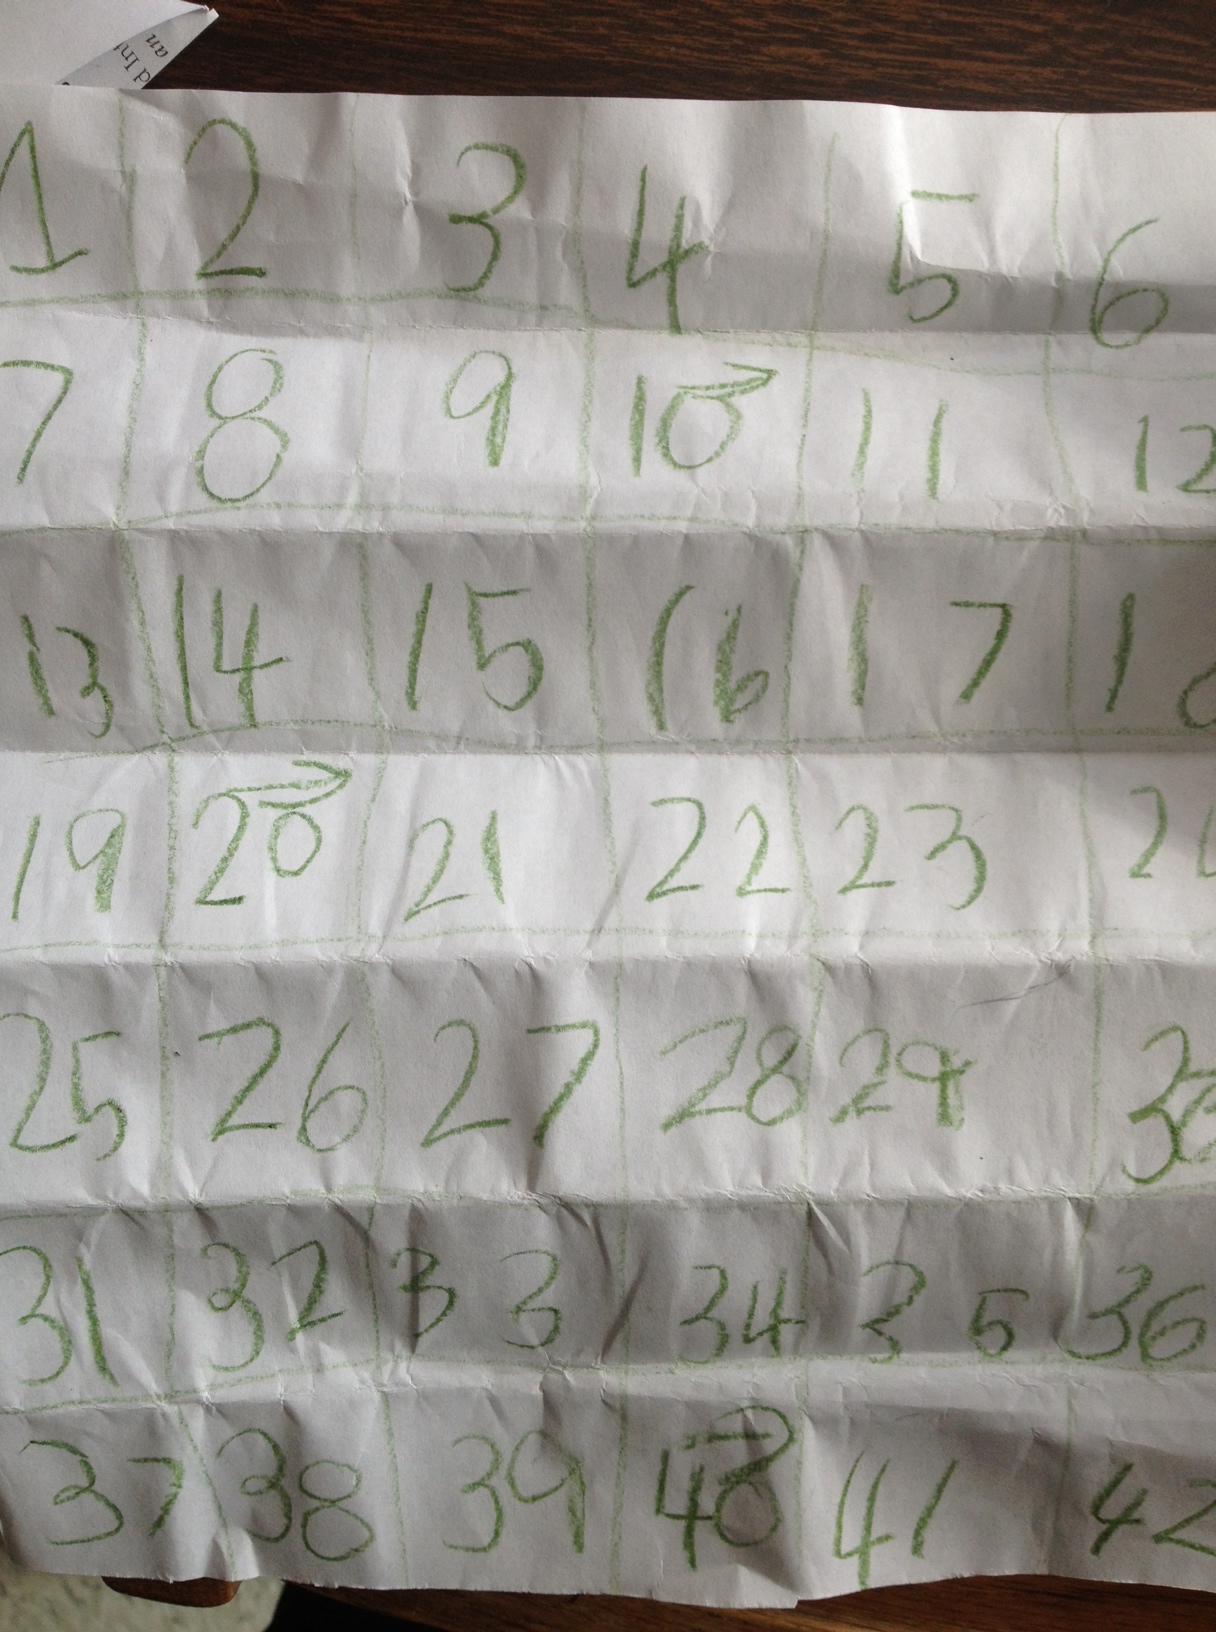 1 2 3 4 5 6
7 8 9 10 11 12
13 14 15 16 17 18
19 20 21 22 23 24
25 26 27 28 29 30
31 32 33 34 35 36
37 38 39 40 41 42
an
d Int